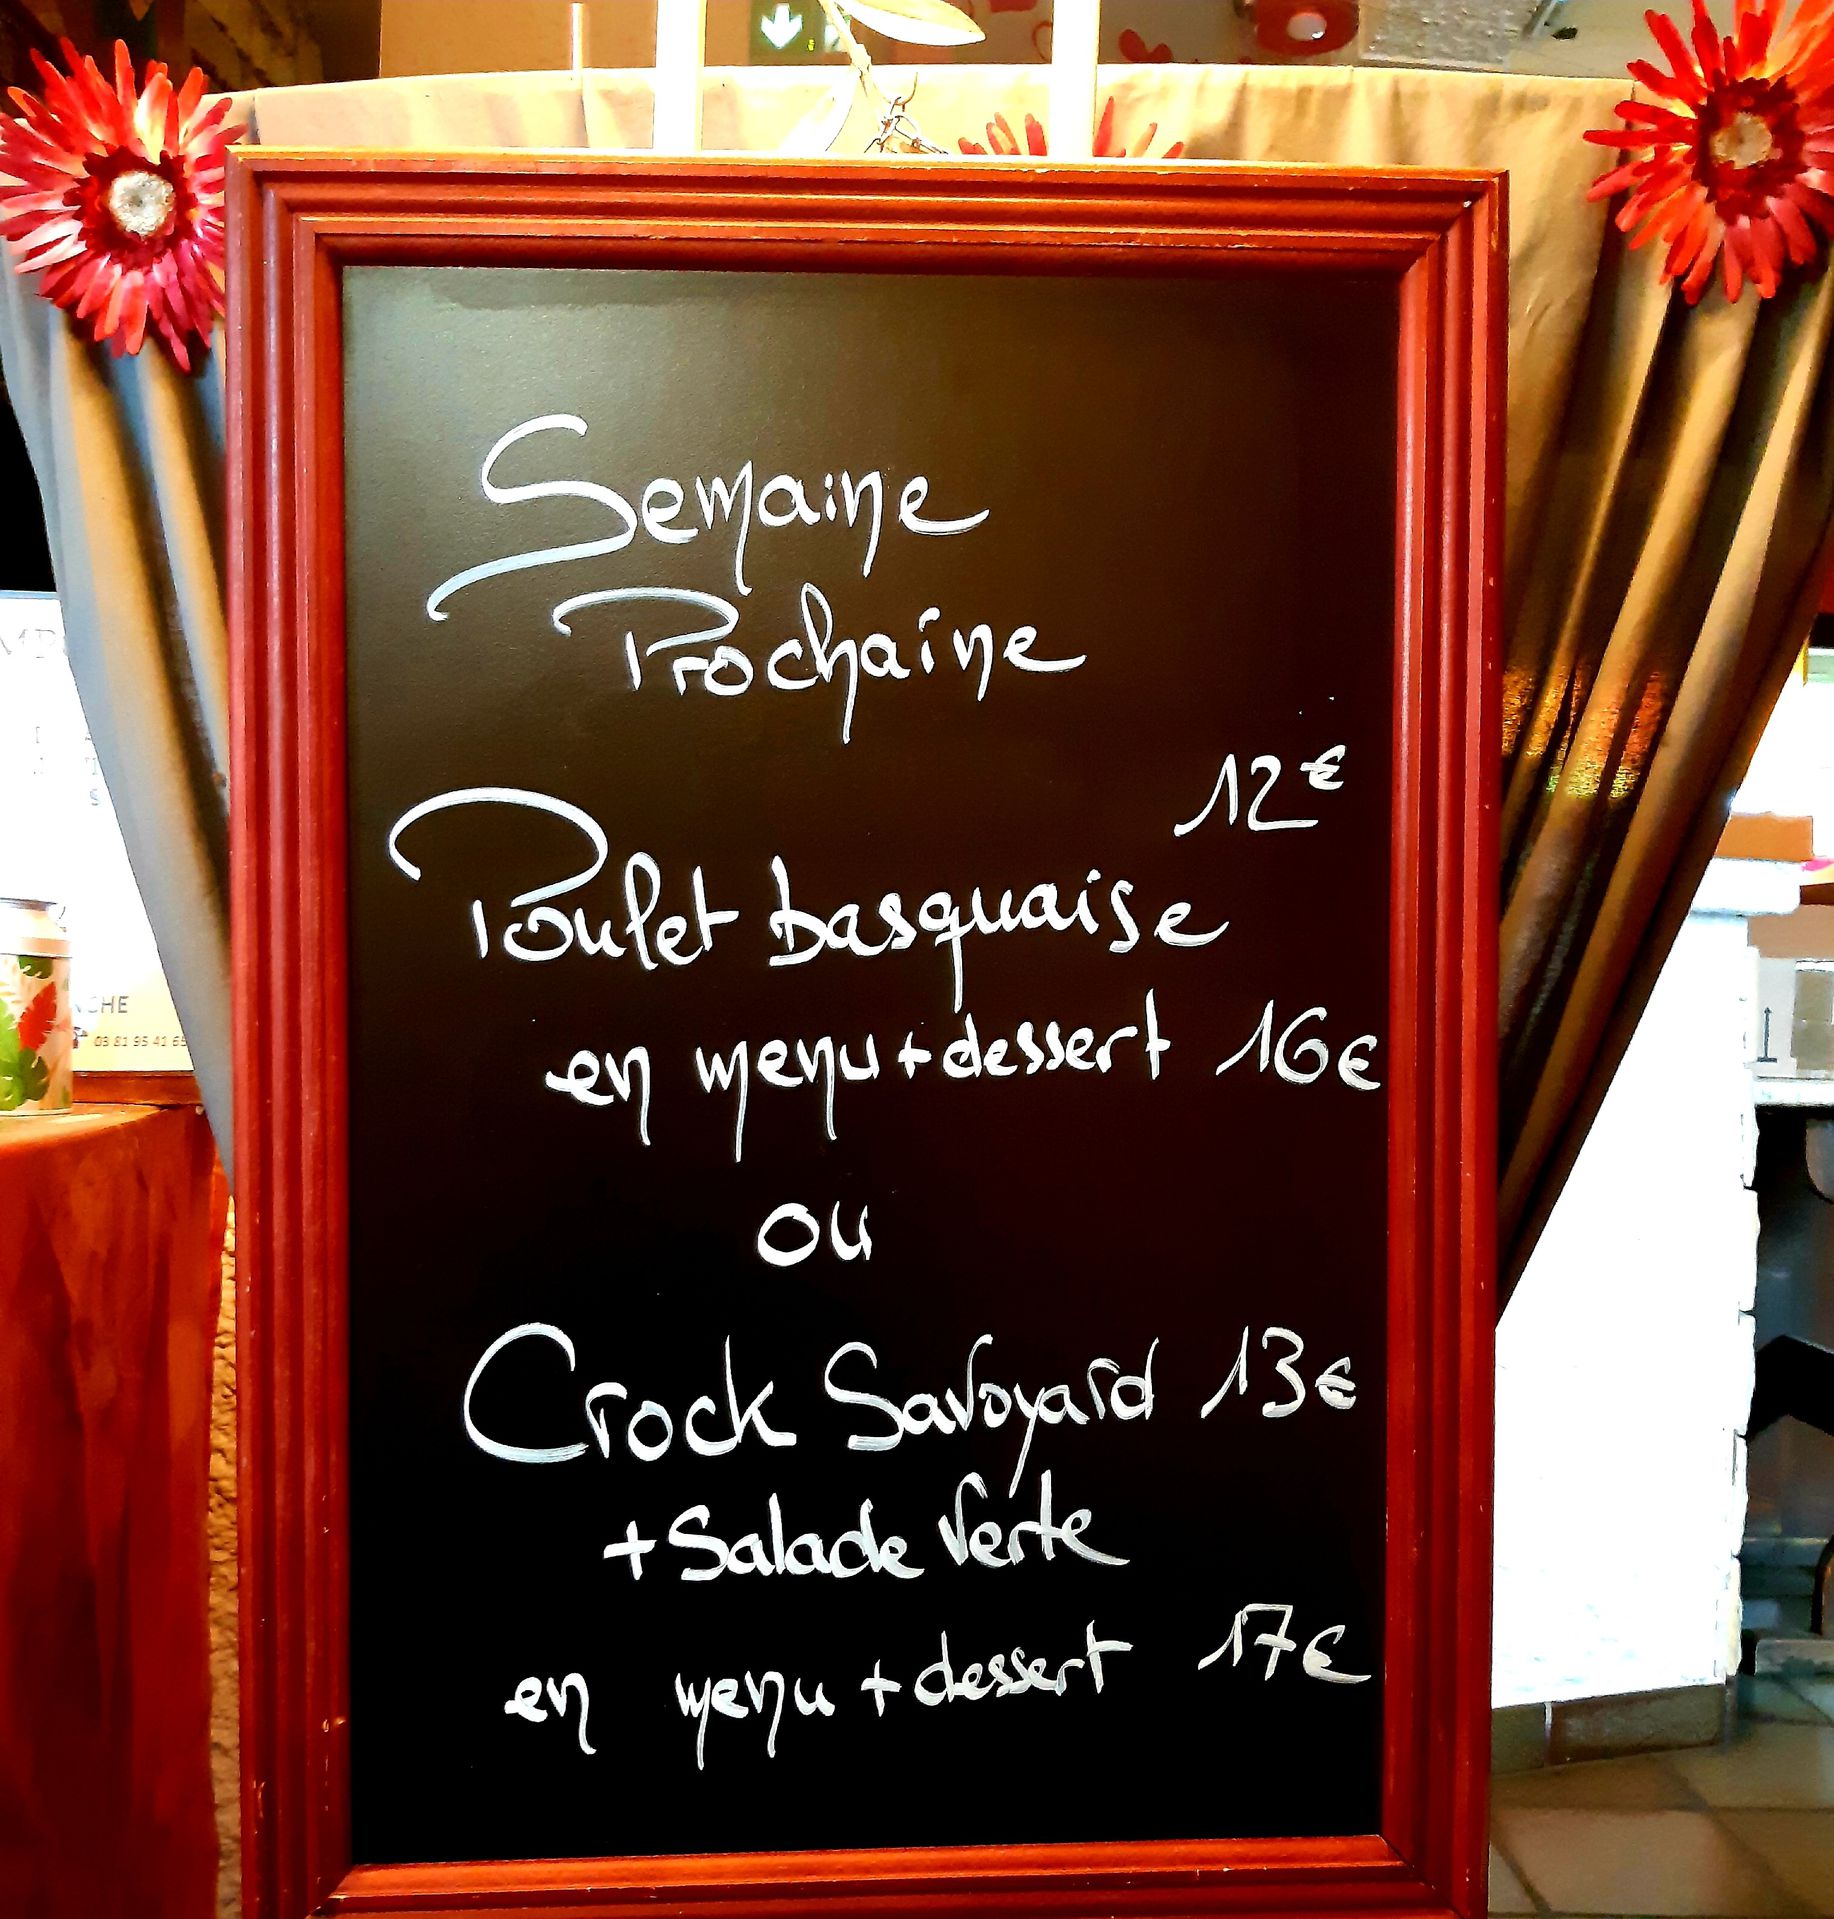 Semaine
Prochaine
12€
Poulet basquaise
en menu + dessert 16€
ou
Crock Savoyard 13€
+ Salade Verte
en menu + dessert 17€
CHE
03 81 95 41 65